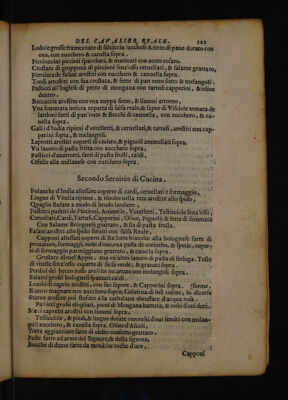 DEL CAVALIER REALE. 121
Lodole grosse tramezzate di salsiccia lucchese & fette di pane dorato con
oua, con zucchero & canella sopra.
Piccioncini piccioli spaccitati, & marinati con aceto rosato.
Crostate di groppone di piccioni senz'osso ceruellati, & salame grattato,
Tordi arrostiti con sua crostata, & fette di pan onto sotto & melangoli.
Pasticci all'Inglese di petto di mongana con tartufi capperini, & oliue
dentro.
Beccaccie arrostite con vna zuppa sotto, & limoni attorno.
Vna sommata intiera coperta di salsa reale, & sapor di Visciole armata de
lardoni fatti di pan'onto & stecchi di cannella, con zucchero, & ca-
nella sopra.
Galli d'India ripieni d'vccelletti, & ceruellati, & tartufi, arrostiti con cap-
perini sopra, & melangoli.
Leprotti arrostiti coperti di cuiero, & pignoli ammollati sopra.
Vn lauoro di pasta fritta con zucchero sopra.
Pasticci d'anatrotti, fatti di pasta frolli, caldi.
Offelle alla milanese con zucchero sopra.
Secondo Seruitio di Cucina.
Polanche d'India allessate coperte di cardi, ceruellati e formaggio,
Lingue di Vitella ripiene, & riuolte nella rete arrostite allo spido.
Quaglie stufate a modo di brodo lardiero.
Pasticci pudriti de Piccioni, Animelle, Vccelletti, Testicciole senz'osso,
Ceruellati, Cardi, Tartufi, Capperini, Oliue, Pignoli, & fette di sommata
Con Salame Bolognese grattato, & sia di pasta frolla.
Fasani arrostiti allo spido serniti con salsa Reale.
Capponi allessati coperti di Ballotte bianche alla bolognese fatte di
Crostate dimess'Appio, con vn'altro lauoro di pasta di sfoglia. Teste
di vitelle senz'osso coperte di salsa verde, & granati sopra.
Salami grossi bolognesi spaccati caldi.
Lombi di caprio arrostiti, con suo sapore, & Capperini sopra.
Bianco magnare con zucchero sopra; Gelatina di bel colore, in diuerse
forme.
Starne arrostite poi stufate alla cathalana sbruffate d'acqua rosa.
Pasticci grossi sfogliati, pieni di Mongana battuta, & rossi d'oui duri.
Mezi capretti arrostiti sopra.
Testicciole, & piedi, & lingue dorate con rossi d'oui fritti con melan-
goli zucchero, & canella sopra. Oliue d'Ascoli.
Torte agghiacciate fatte di cedro confetto grattato.
Paste fatte ad arme del Signore & della signora.
Bocche di dame fatte da monache
Capponi